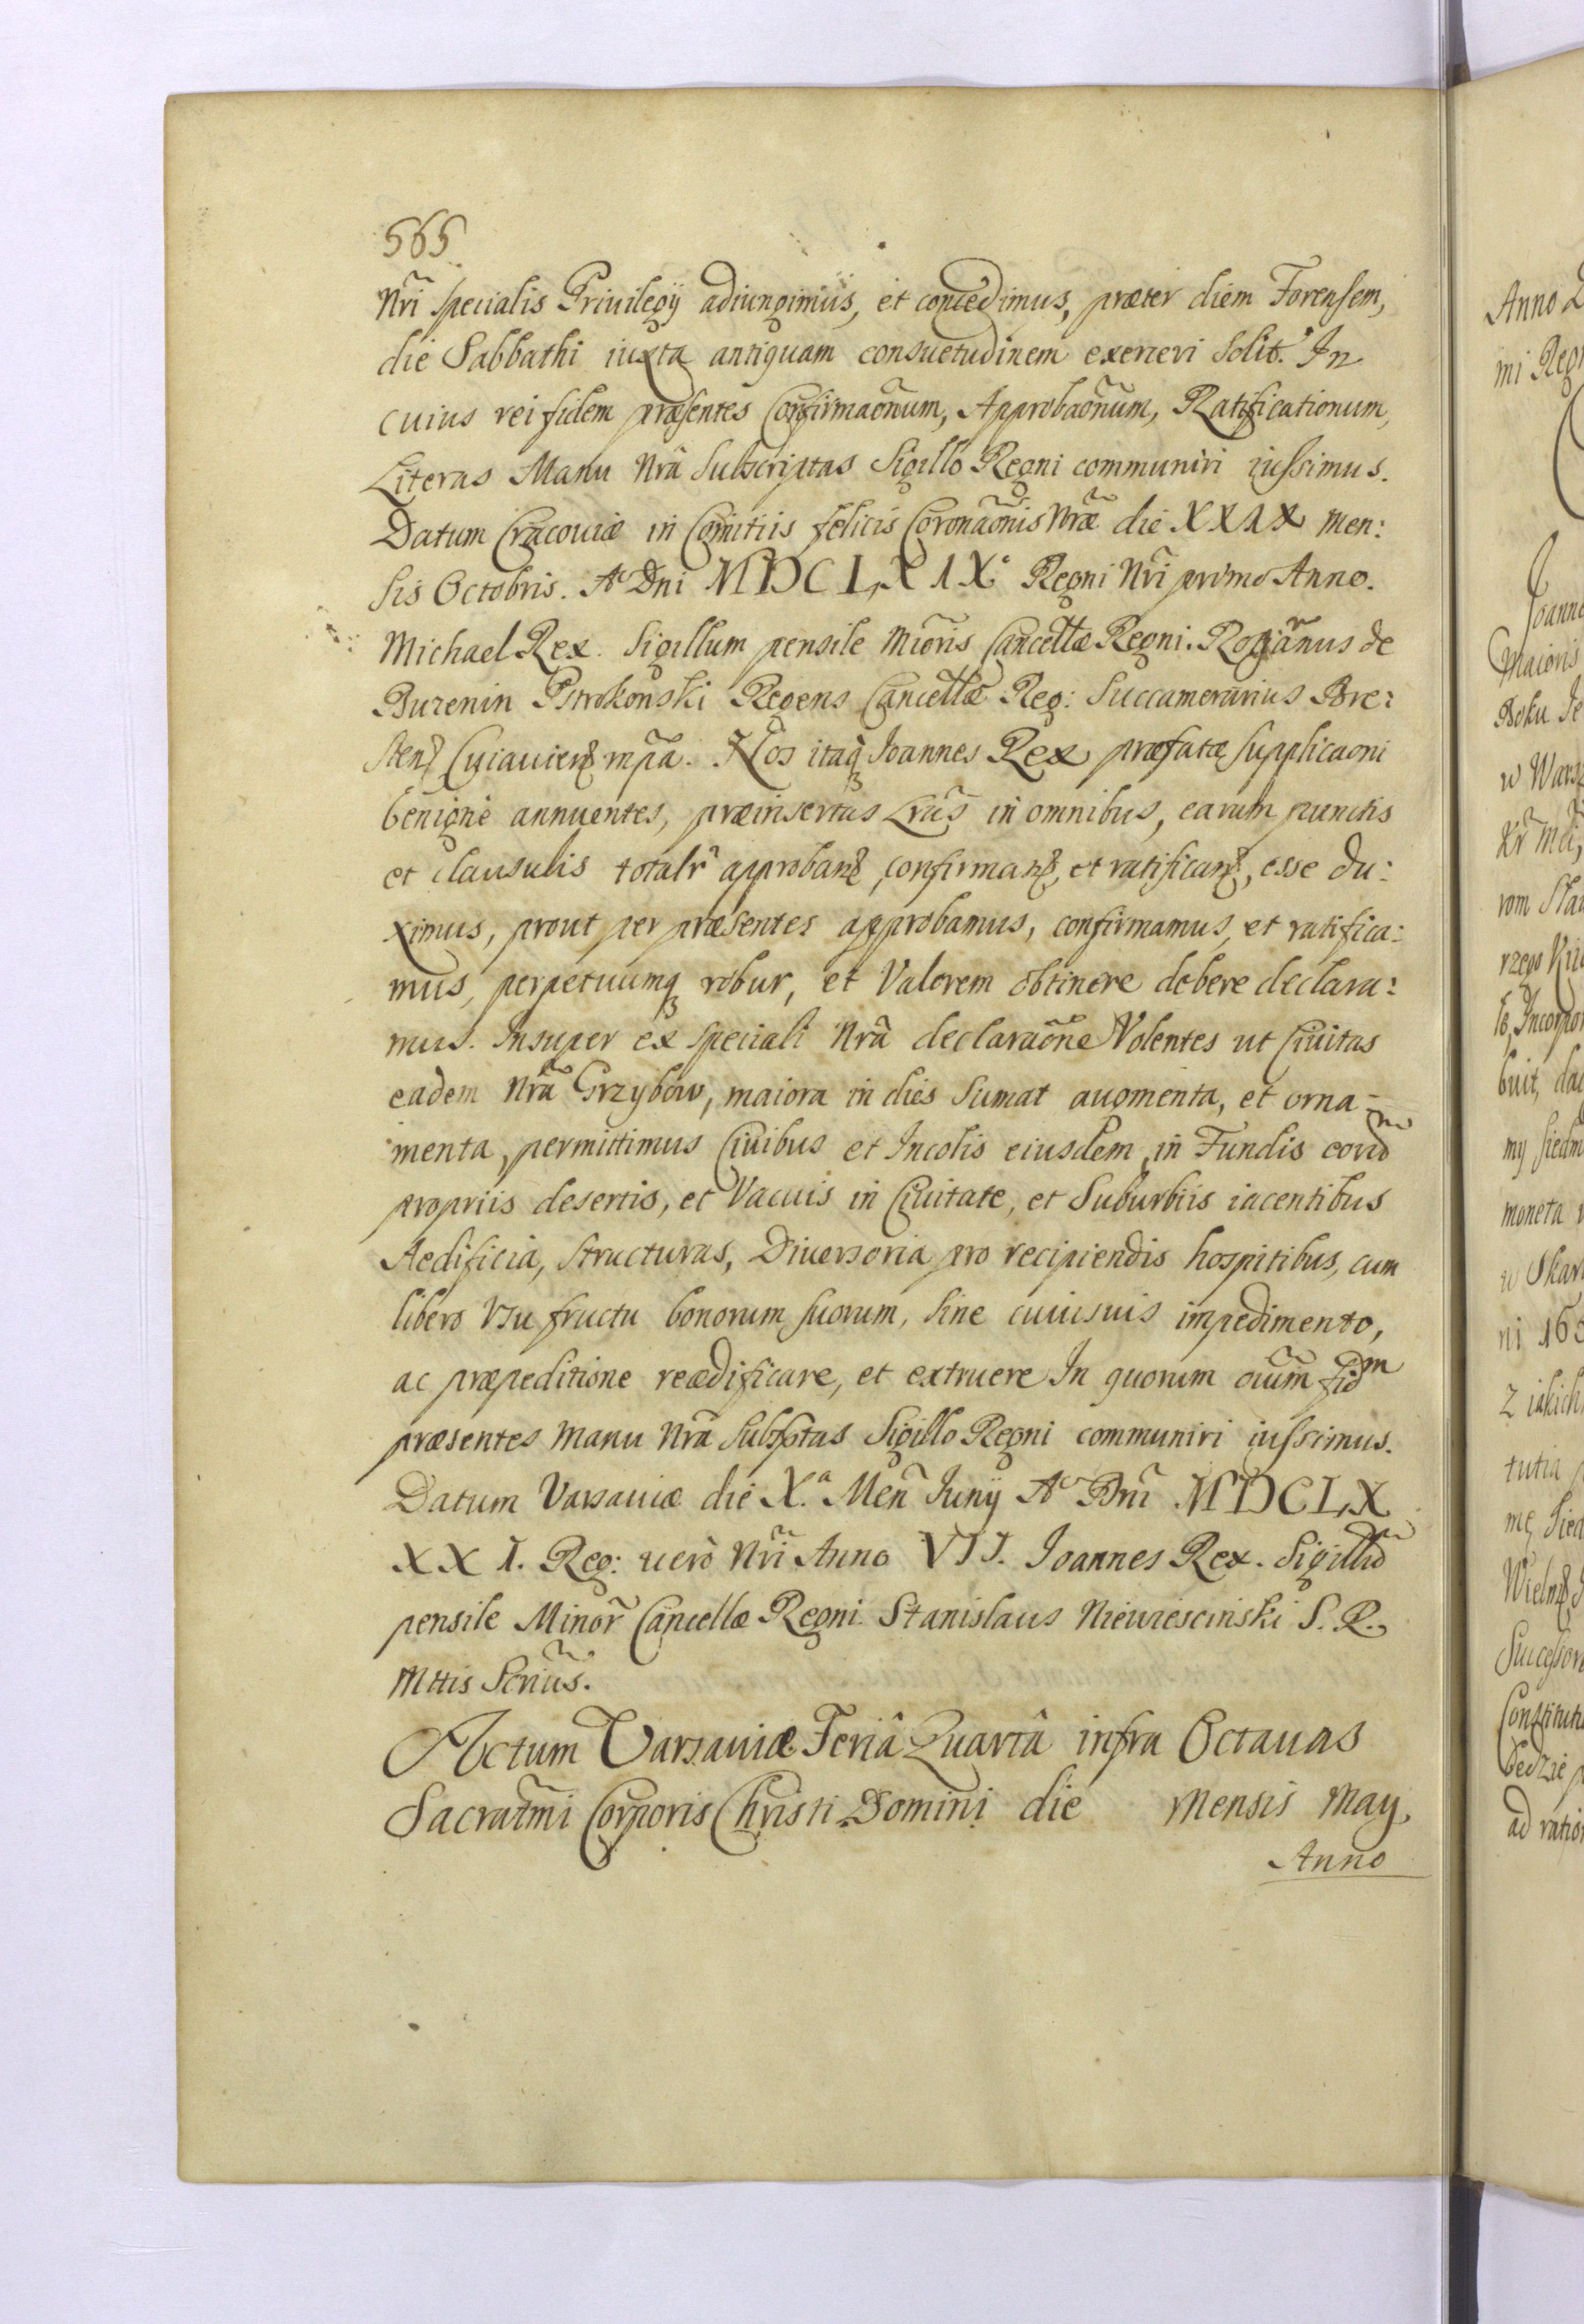 565
Nrĩ specialis Priuilegij adiungimus, et concedimus, præter diem Forensem,
die Sabbathi iuxta antiquam consuetudinem exerceri solit. In
cuius rei fidem præsentes Confirmaõnum, Approbaõnum, Ratificationum,
Literas Manu Nrã Subscriptas Sigillo Regni communiri iussimus.
Datum Cracouiæ in Comitiis felicis Coronaõnis Nræ die XXIX Men:
sis Octobris. Aº Dni MDCLXIXº Regni Nrĩ primo Anno.
Michael Rex. Sigillum pensile Mioris Cancellæ Regni. Romanus de
Burenin Pstrokonski Regens Cancellæ Reg: Succamerarius Bre:
sten Cuiauien mpa. Nos itaq Joannes Rex præfatæ supplicaoni
benigne annuentes, præinsertas Lrãs in omnibus, earum punctis
et clausulis totalr approban, confirman, et ratifican, esse du:
ximus, prout per præsentes approbamus, confirmamus, et ratifica:
mus, perpetuumq robur, et Valorem obtinere debere declara:
mus. Insuper ex speciali Nrã declaraõne Volentes ut Ciuitas
eadem Nrã Grzybow, maiora in dies sumat augmenta, et orna-
menta, permittimus Ciuibus et Incolis eiusdem, in Fundis eorũ
propriis desertis, et Vacuis in Ciuitate, et Suburbiis iacentibus
Aedificia, structuras, Diuersoria pro recipiendis hospitibus, cum
libero Vsu fructu bonorum suorum, sine cuiusuis impedimento,
ac præpeditione reædificare, et extruere In quorum oium fidm
præsentes Manu Nrã Subsptas Sigillo Regni communiri iussimus.
Datum Varsauiæ die X.ª Men Iunij Aº Dni MDCLX
XXI. Reg: uerò Nrĩ Anno VII. Joannes Rex. Sigillũ
pensile Minor Cancellæ Regni Stanislaus Niewiescinski S. R.
Mttis Scriũs.
Actum Varsauiæ Feriâ Quartâ infra Octauas
Sacratmi Corporis Christi Domini die Mensis May
Anno